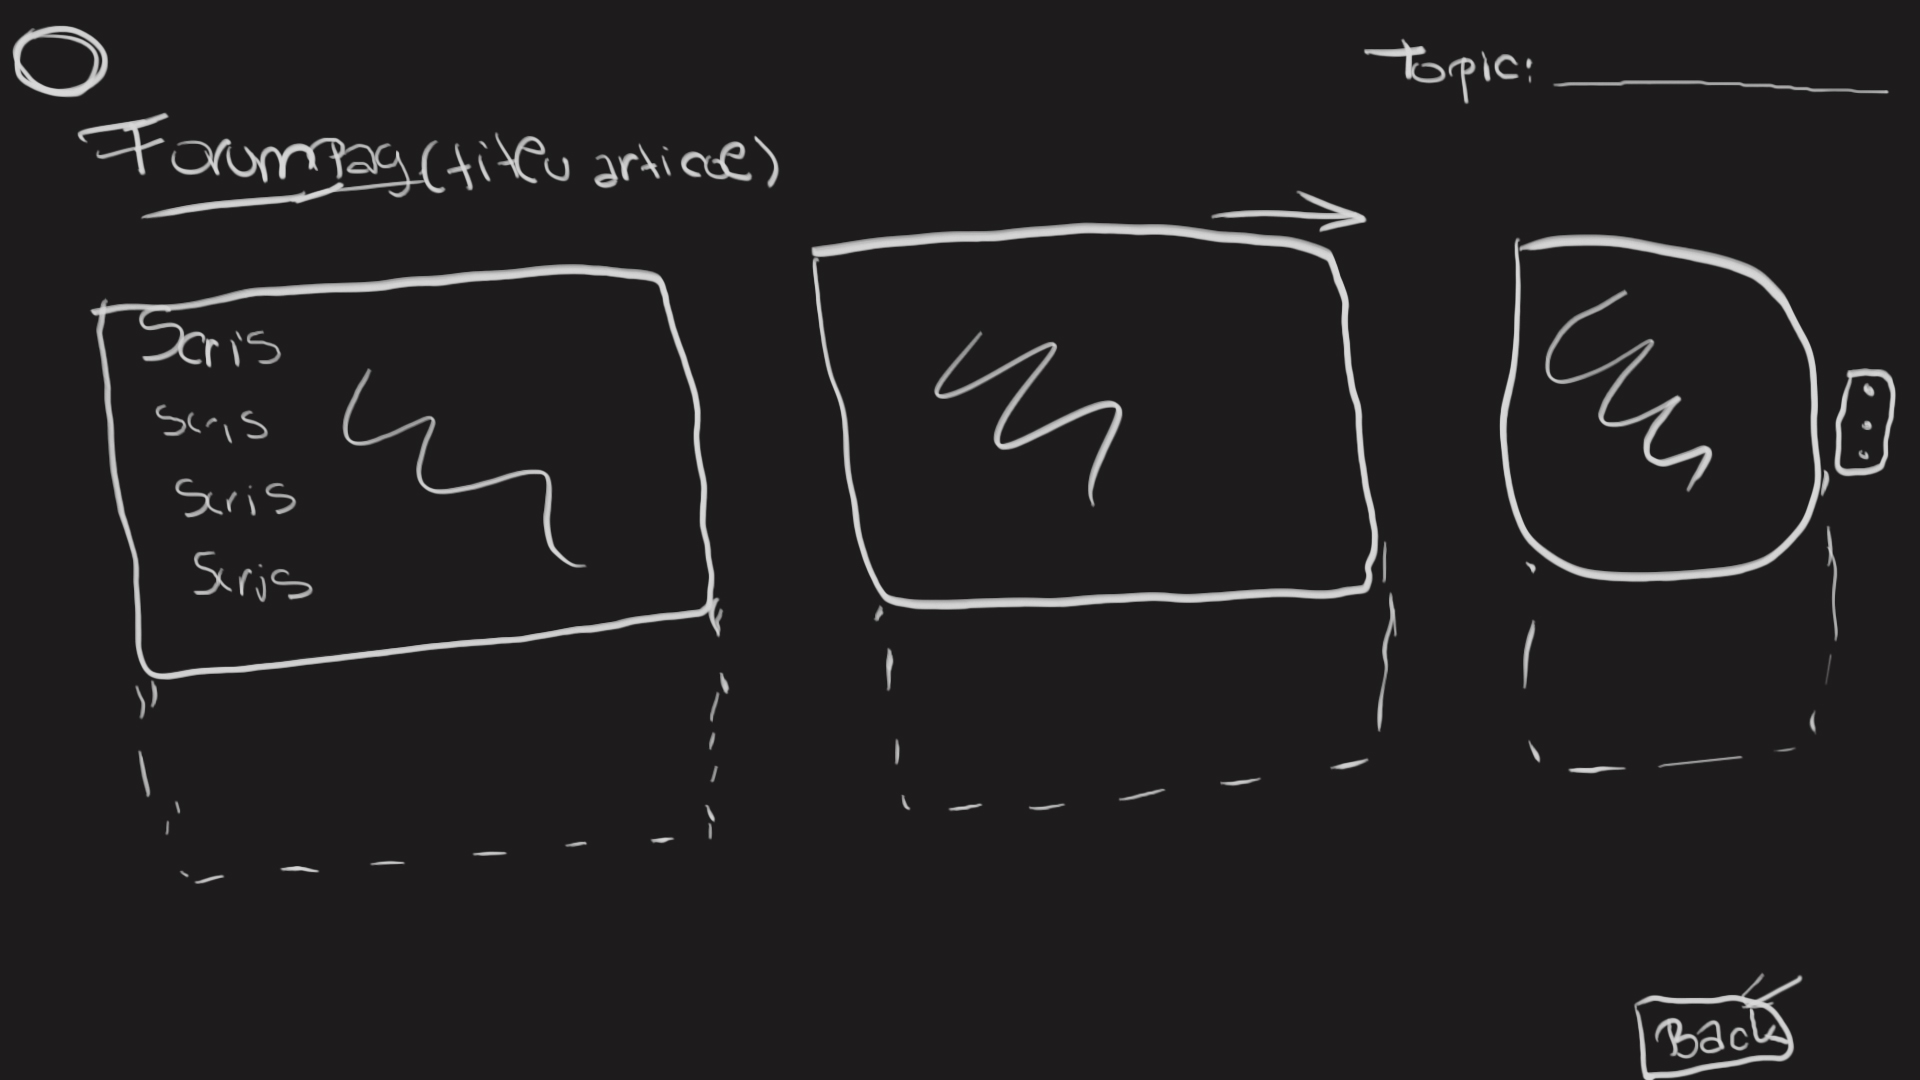 Topic:
ForumPag (titlu articol)
Scris
Scris
Scris
Scris
Back